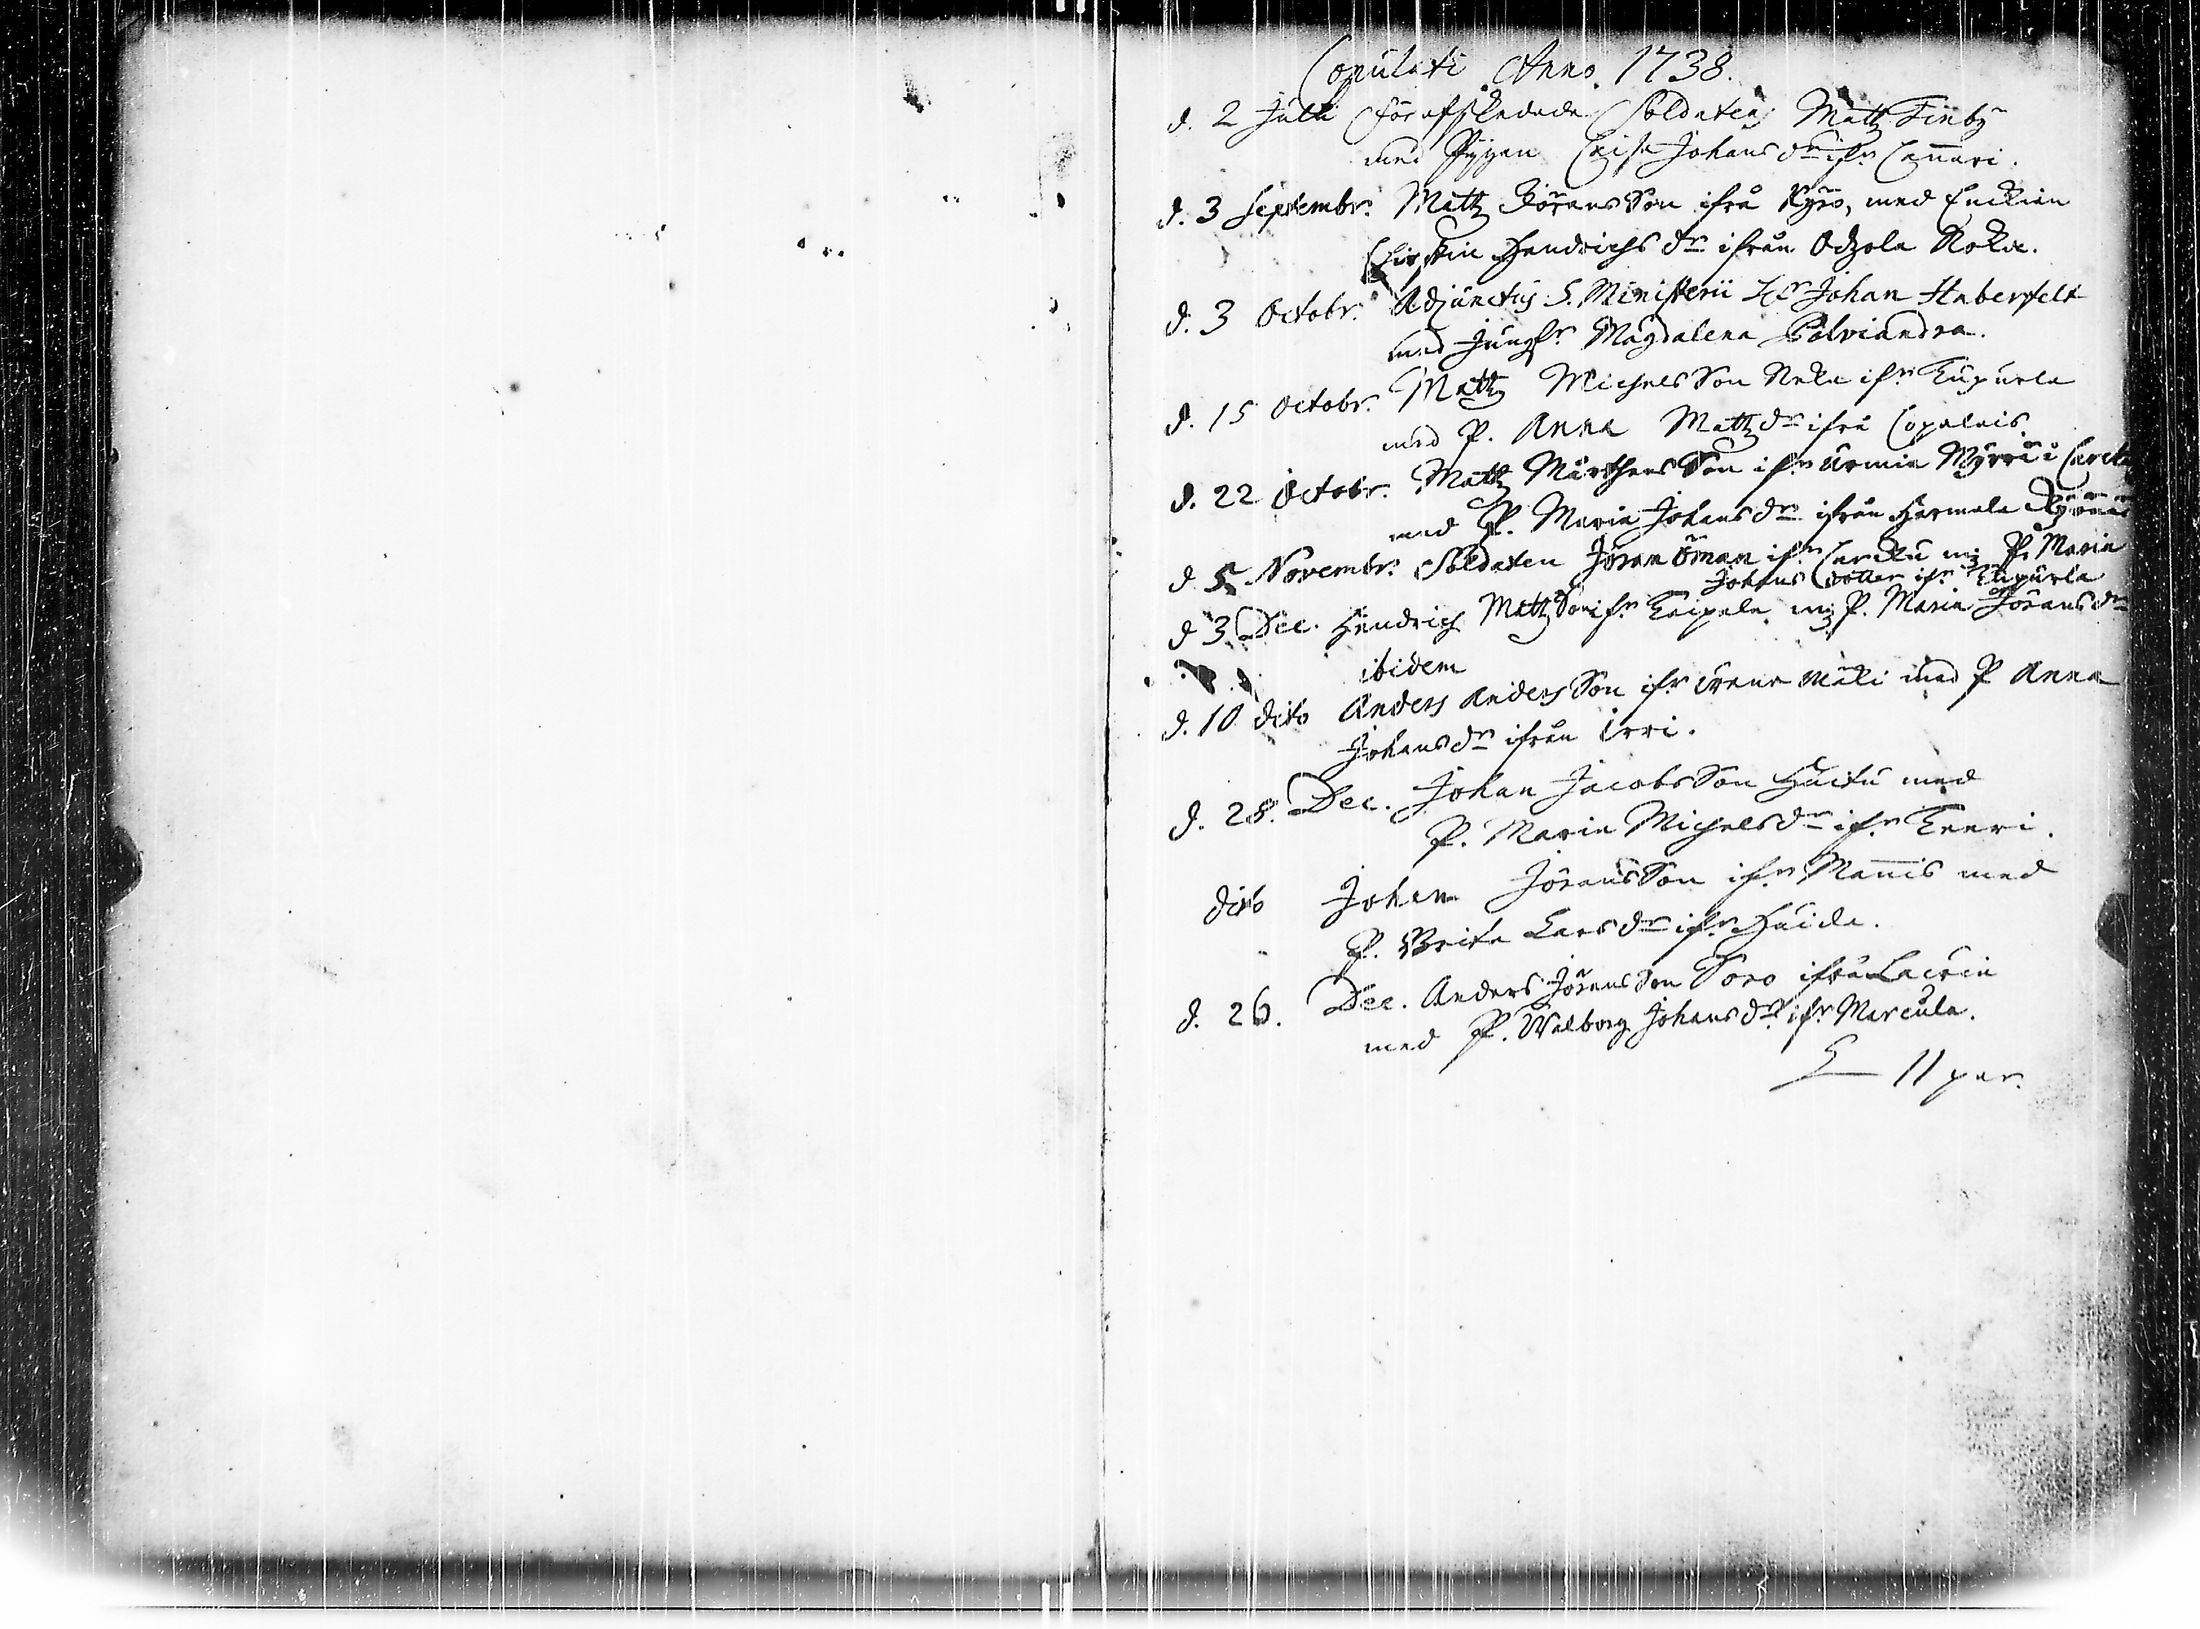 Copulati Anno 1738.
d. 2 Julii förafskedade Soldaten Matts Finby
med Pigan Caisa Johans dr ifr Cannari.
d. 3 Septembr. Matts Jörans Son ifrå Kyrö, med Enckian
Chirstin Hendrichs dr ifrån Odzola
d. 3 Octobr. Adjunctus S. Ministerii Hr Johan Haberfelt
med Jungfr Magdalena Polviandra.
d. 15 Octobr. Matts Michels Son ifr
med P. Anna Matts dr ifrå Copolais
d. 22 Octobr. Matts Mårthens Son ifr Myrri i
med P. Maria Johans dr ifrån Hermala
d. 5 Novembr. Soldaten Jöran Öman ifr mz P. Maria
Johans dotter ifr
d. 3 Dec. Hendrich Matts Son ifr Caipala mz P. Maria Jörans dr
ibidem
d. 10 dito Anders Anders Son ifr mäki med P Anna
Johans dr ifrån
d. 28. Dec. Johan Jacobs Son Huitu med
P. Maria Michels dr ifr
dito Johan Jörans Son ifr Mannis med
P. Brita Lars dr ifr Huida.
d. 26. Dec. Anders Jörans Son Toro ifrå
med P. Walborg Johans dr ifr Marcula.
S 11 par.